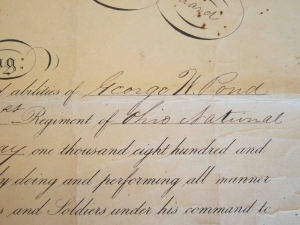 ng:
d abilities of George W. Pond
es Regiment of Ohio National
ay one thousand eight hundred and
by doing and performing all manner
s, and Soldiers under his command to